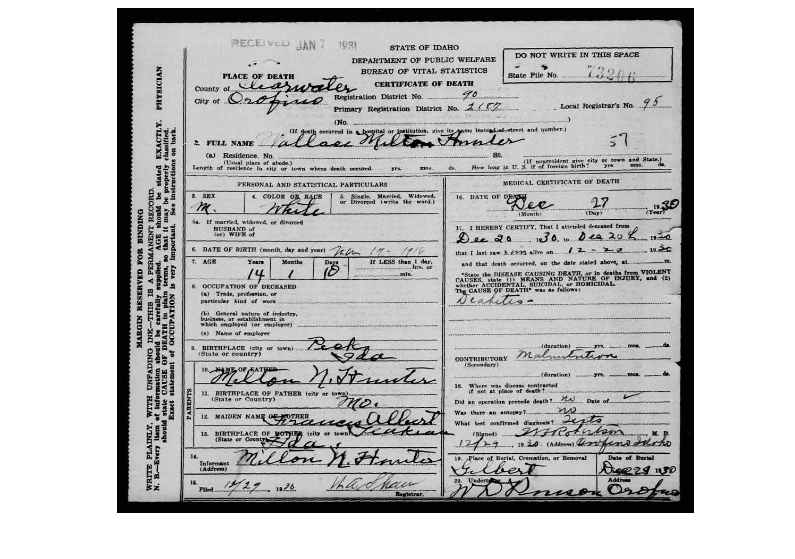 RECEIVED JAN 7 1931
STATE OF IDAHO
DEPARTMENT OF PUBLIC WELFARE
BUREAU OF VITAL STATISTICS
CERTIFICATE OF DEATH
DO NOT WRITE IN THIS SPACE
State File No. 73206
PLACE OF DEATH
County of Clearwater
City of Orofino
Registration District No. 90
Primary Registration District No. 2157
Local Registrar's No. 95
(No. )
(If death occurred in a hospital or institution, give its name instead of street and number.)
2. FULL NAME Wallace Milton Hunter
57
(a) Residence. No. St.
(Usual place of abode.) (If nonresident give city or town and State.)
Length of residence in city or town where death occurred. yrs. mos. ds. How long in U. S. if of foreign birth? yrs. mos. ds.
PERSONAL AND STATISTICAL PARTICULARS
3. SEX
M.
4. COLOR OR RACE
White
5. Single, Married, Widowed, or Divorced (write the word.)
5a. If married, widowed, or divorced
HUSBAND of
(or) WIFE of
6. DATE OF BIRTH (month, day and year) 17 - 1916
7. AGE Years Months Days If LESS than 1 day,
14 1 10 hrs. or
min.
8. OCCUPATION OF DECEASED
(a) Trade, profession, or
particular kind of work
(b) General nature of industry,
business, or establishment in
which employed (or employer)
(c) Name of employer
9. BIRTHPLACE (city or town) Peck
(State or country) Ida
PARENTS
10. NAME OF FATHER
Milton N. Hunter
11. BIRTHPLACE OF FATHER (city or town)
(State or Country) Mo.
12. MAIDEN NAME OF MOTHER
Francis Albert
13. BIRTHPLACE OF MOTHER (city or town)
(State or Country) Ida
14.
Informant Milton N. Hunter
(Address)
15.
Filed 12/29 1930 W.A. Shaw
Registrar.
MEDICAL CERTIFICATE OF DEATH
16. DATE OF DEATH
Dec 27 1930
(Month) (Day) (Year)
17. I HEREBY CERTIFY, That I attended deceased from
Dec 20 1930, to Dec 20th 1930
that I last saw him alive on 12-20 1930
and that death occurred, on the date stated above, at m.
*State the DISEASE CAUSING DEATH, or in deaths from VIOLENT
CAUSES, state (1) MEANS AND NATURE OF INJURY, and (2)
whether ACCIDENTAL, SUICIDAL, or HOMICIDAL.
The CAUSE OF DEATH* was as follows:
Diabetis -
(duration) yrs. mos. ds.
CONTRIBUTORY Malnutrition
(Secondary)
(duration) yrs. mos. ds.
18. Where was disease contracted
if not at place of death?
Did an operation precede death? no Date of
Was there an autopsy? no
What test confirmed diagnosis? Tests
(Signed) Robertson M. D.
12/29 1930. (Address) Orofino Idaho
19. Place of Burial, Cremation, or Removal Date of Burial
Gilbert Dec 29 1930
20. Undertaker Address
Orofino
MARGIN RESERVED FOR BINDING
WRITE PLAINLY, WITH UNFADING INK—THIS IS A PERMANENT RECORD.
N. B.—Every item of information should be carefully supplied. AGE should be stated EXACTLY. PHYSICIAN
should state CAUSE OF DEATH in plain terms, so that it may be properly classified.
Exact statement of OCCUPATION is very important. See instructions on back.